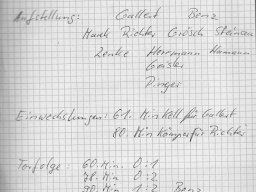 Aufstellung: Gallert Benz
Mauk Richter Grösch Steinau
Zentke Herrmann Hamann
Geisler
Dinger
Einwechslungen: 61. Min Kell für Gallert
80. Min Kämper für Richter
Torfolge: 60. Min. 0:1
78. Min 0:2
90. Min 1:2 Benz